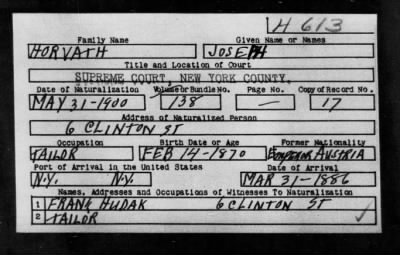 H 613
Family Name Given Name or Names
HORVATH JOSEPH
Title and Location of Court
SUPREME COURT, NEW YORK COUNTY.
Date of Naturalization Volume or Bundle No. Page No. Copy of Record No.
MAY 31-1900 138 — 17
Address of Naturalized Person
6 CLINTON ST
Occupation Birth Date or Age Former Nationality
TAILOR FEB 14-1870 EMPEROR AUSTRIA
Port of Arrival in the United States Date of Arrival
N.Y. N.Y. MAR 31-1886
Names, Addresses and Occupations of Witnesses To Naturalization
1 FRANK HUDAK 6 CLINTON ST
2 TAILOR